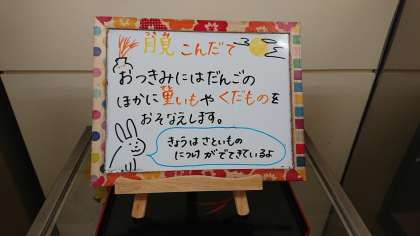 月見 こんだて
おつきみにはだんごの
ほかに里いもやくだものを
おそなえします。
きょうは さといもの
につけ がでてきているよ